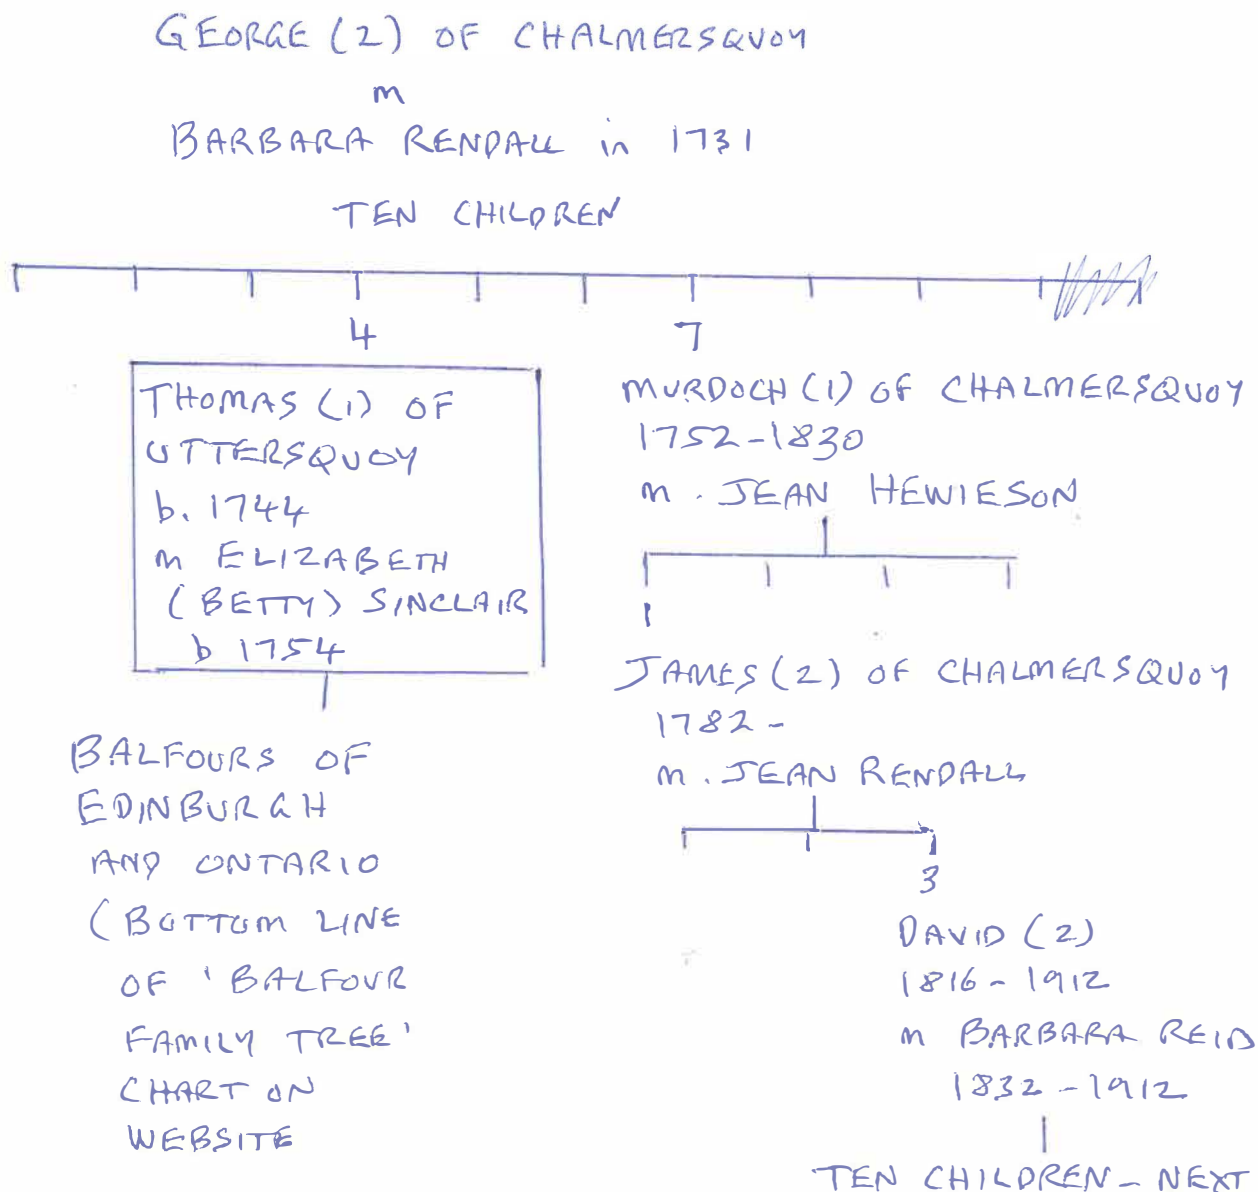 GEORGE (2) OF CHALMERSQUOY
m
BARBARA RENDALL in 1731
TEN CHILDREN
4
7
THOMAS (1) OF
UTTERSQUOY
b. 1744
m ELIZABETH
(BETTY) SINCLAIR
b 1754
BALFOURS OF
EDINBURGH
AND ONTARIO
(BOTTOM LINE
OF 'BALFOUR
FAMILY TREE'
CHART ON
WEBSITE
MURDOCH (1) OF CHALMERSQUOY
1752-1830
m. JEAN HEWIESON
1
JAMES (2) OF CHALMERSQUOY
1782-
m. JEAN RENDALL
3
DAVID (2)
1816-1912
m BARBARA REID
1832-1912
TEN CHILDREN - NEXT